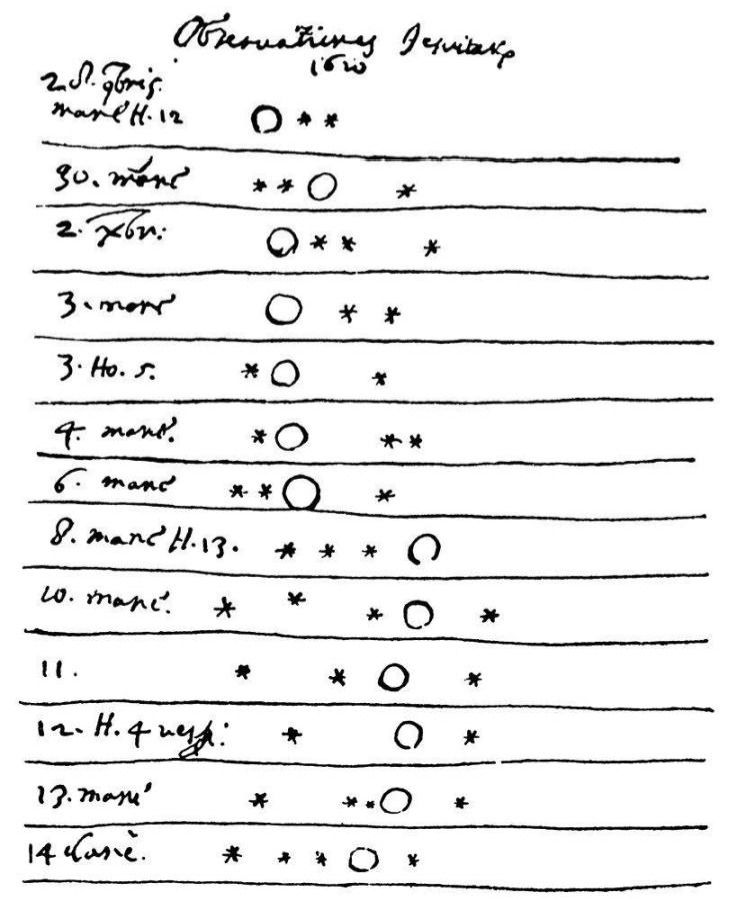 Observationes Jesuitarū
1610
2. S. 9bris.
mane H. 12
30. mane
2. xbri:
3. mane
3. Ho. 5.
4. mane.
6. mane
8. mane H. 13.
10. mane.
11.
12. H. 4 vesp:
13. mane
14 mane.